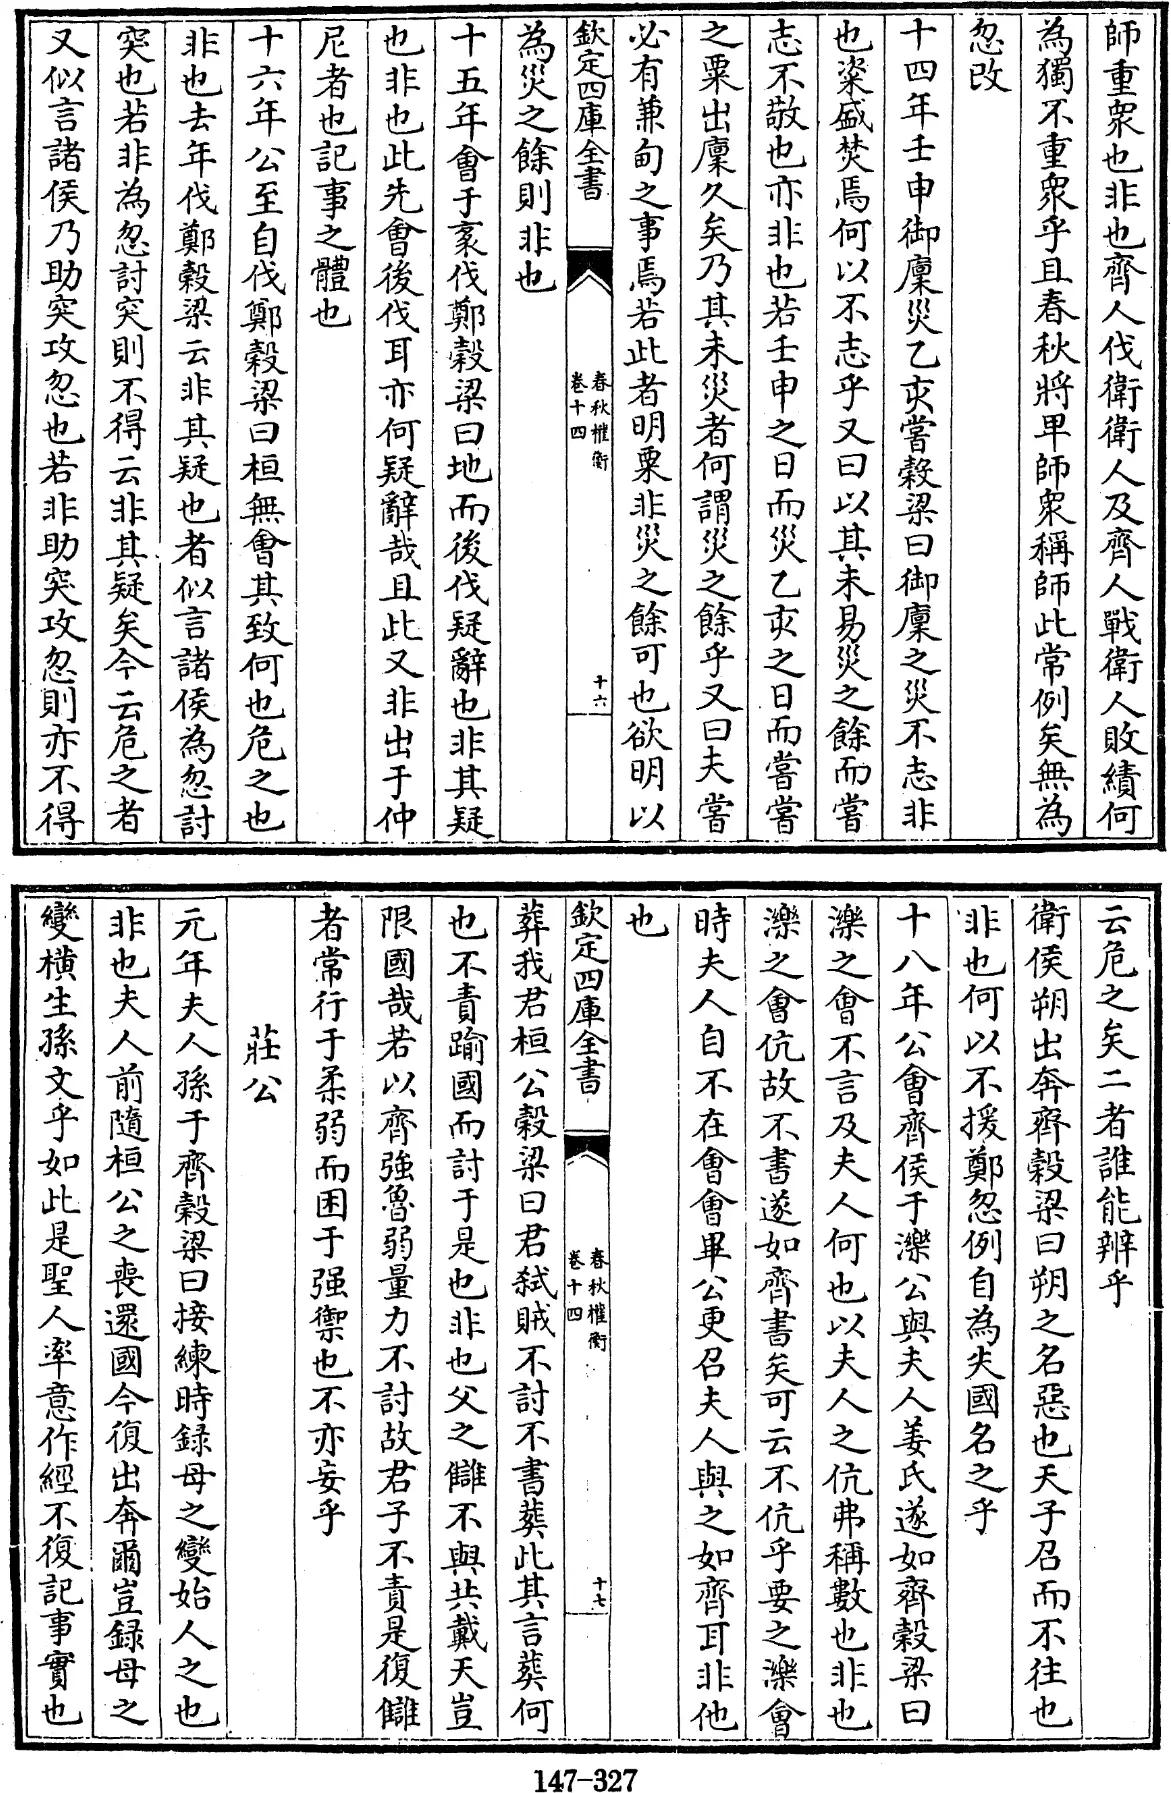 師重衆也非也齊人伐衛衛人及齊人戰衛人敗績何
為獨不重衆乎且春秋將卑師衆稱師此常例矣無為
忽改
十四年壬申御廩災乙亥嘗穀梁曰御廩之災不志非
也粢盛焚焉何以不志乎又曰以其未易災之餘而嘗
志不敬也亦非也若壬申之日而災乙亥之日而嘗嘗
之粟出廩久矣乃其未災者何謂災之餘乎又曰夫嘗
必有兼甸之事焉若此者明粟非災之餘可也欲明以
欽定四庫全書
春秋權衡
卷十四
十六
為災之餘則非也
十五年會于袲伐鄭穀梁曰地而後伐疑辭也非其疑
也非也此先會後伐耳亦何疑辭哉且此又非出于仲
尼者也記事之體也
十六年公至自伐鄭穀梁曰桓無會其致何也危之也
非也去年伐鄭穀梁云非其疑也者似言諸侯為忽討
突也若非為忽討突則不得云非其疑矣今云危之者
又似言諸侯乃助突攻忽也若非助突攻忽則亦不得
云危之矣二者誰能辨乎
衛侯朔出奔齊穀梁曰朔之名惡也天子召而不往也
非也何以不援鄭忽例自為失國名之乎
十八年公會齊侯于濼公與夫人姜氏遂如齊穀梁曰
濼之會不言及夫人何也以夫人之伉弗稱數也非也
濼之會伉故不書遂如齊書矣可云不伉乎要之濼會
時夫人自不在會會畢公更召夫人與之如齊耳非他
也
欽定四庫全書
春秋權衡
卷十四
十七
葬我君桓公穀梁曰君弑賊不討不書葬此其言葬何
也不責踰國而討于是也非也父之讎不與共戴天豈
限國哉若以齊強魯弱量力不討故君子不責是復讎
者常行于柔弱而困于强禦也不亦妄乎
莊公
元年夫人孫于齊穀梁曰接練時録母之變始人之也
非也夫人前隨桓公之喪還國今復出奔爾豈録母之
變横生孫文乎如此是聖人率意作經不復記事實也
147-327